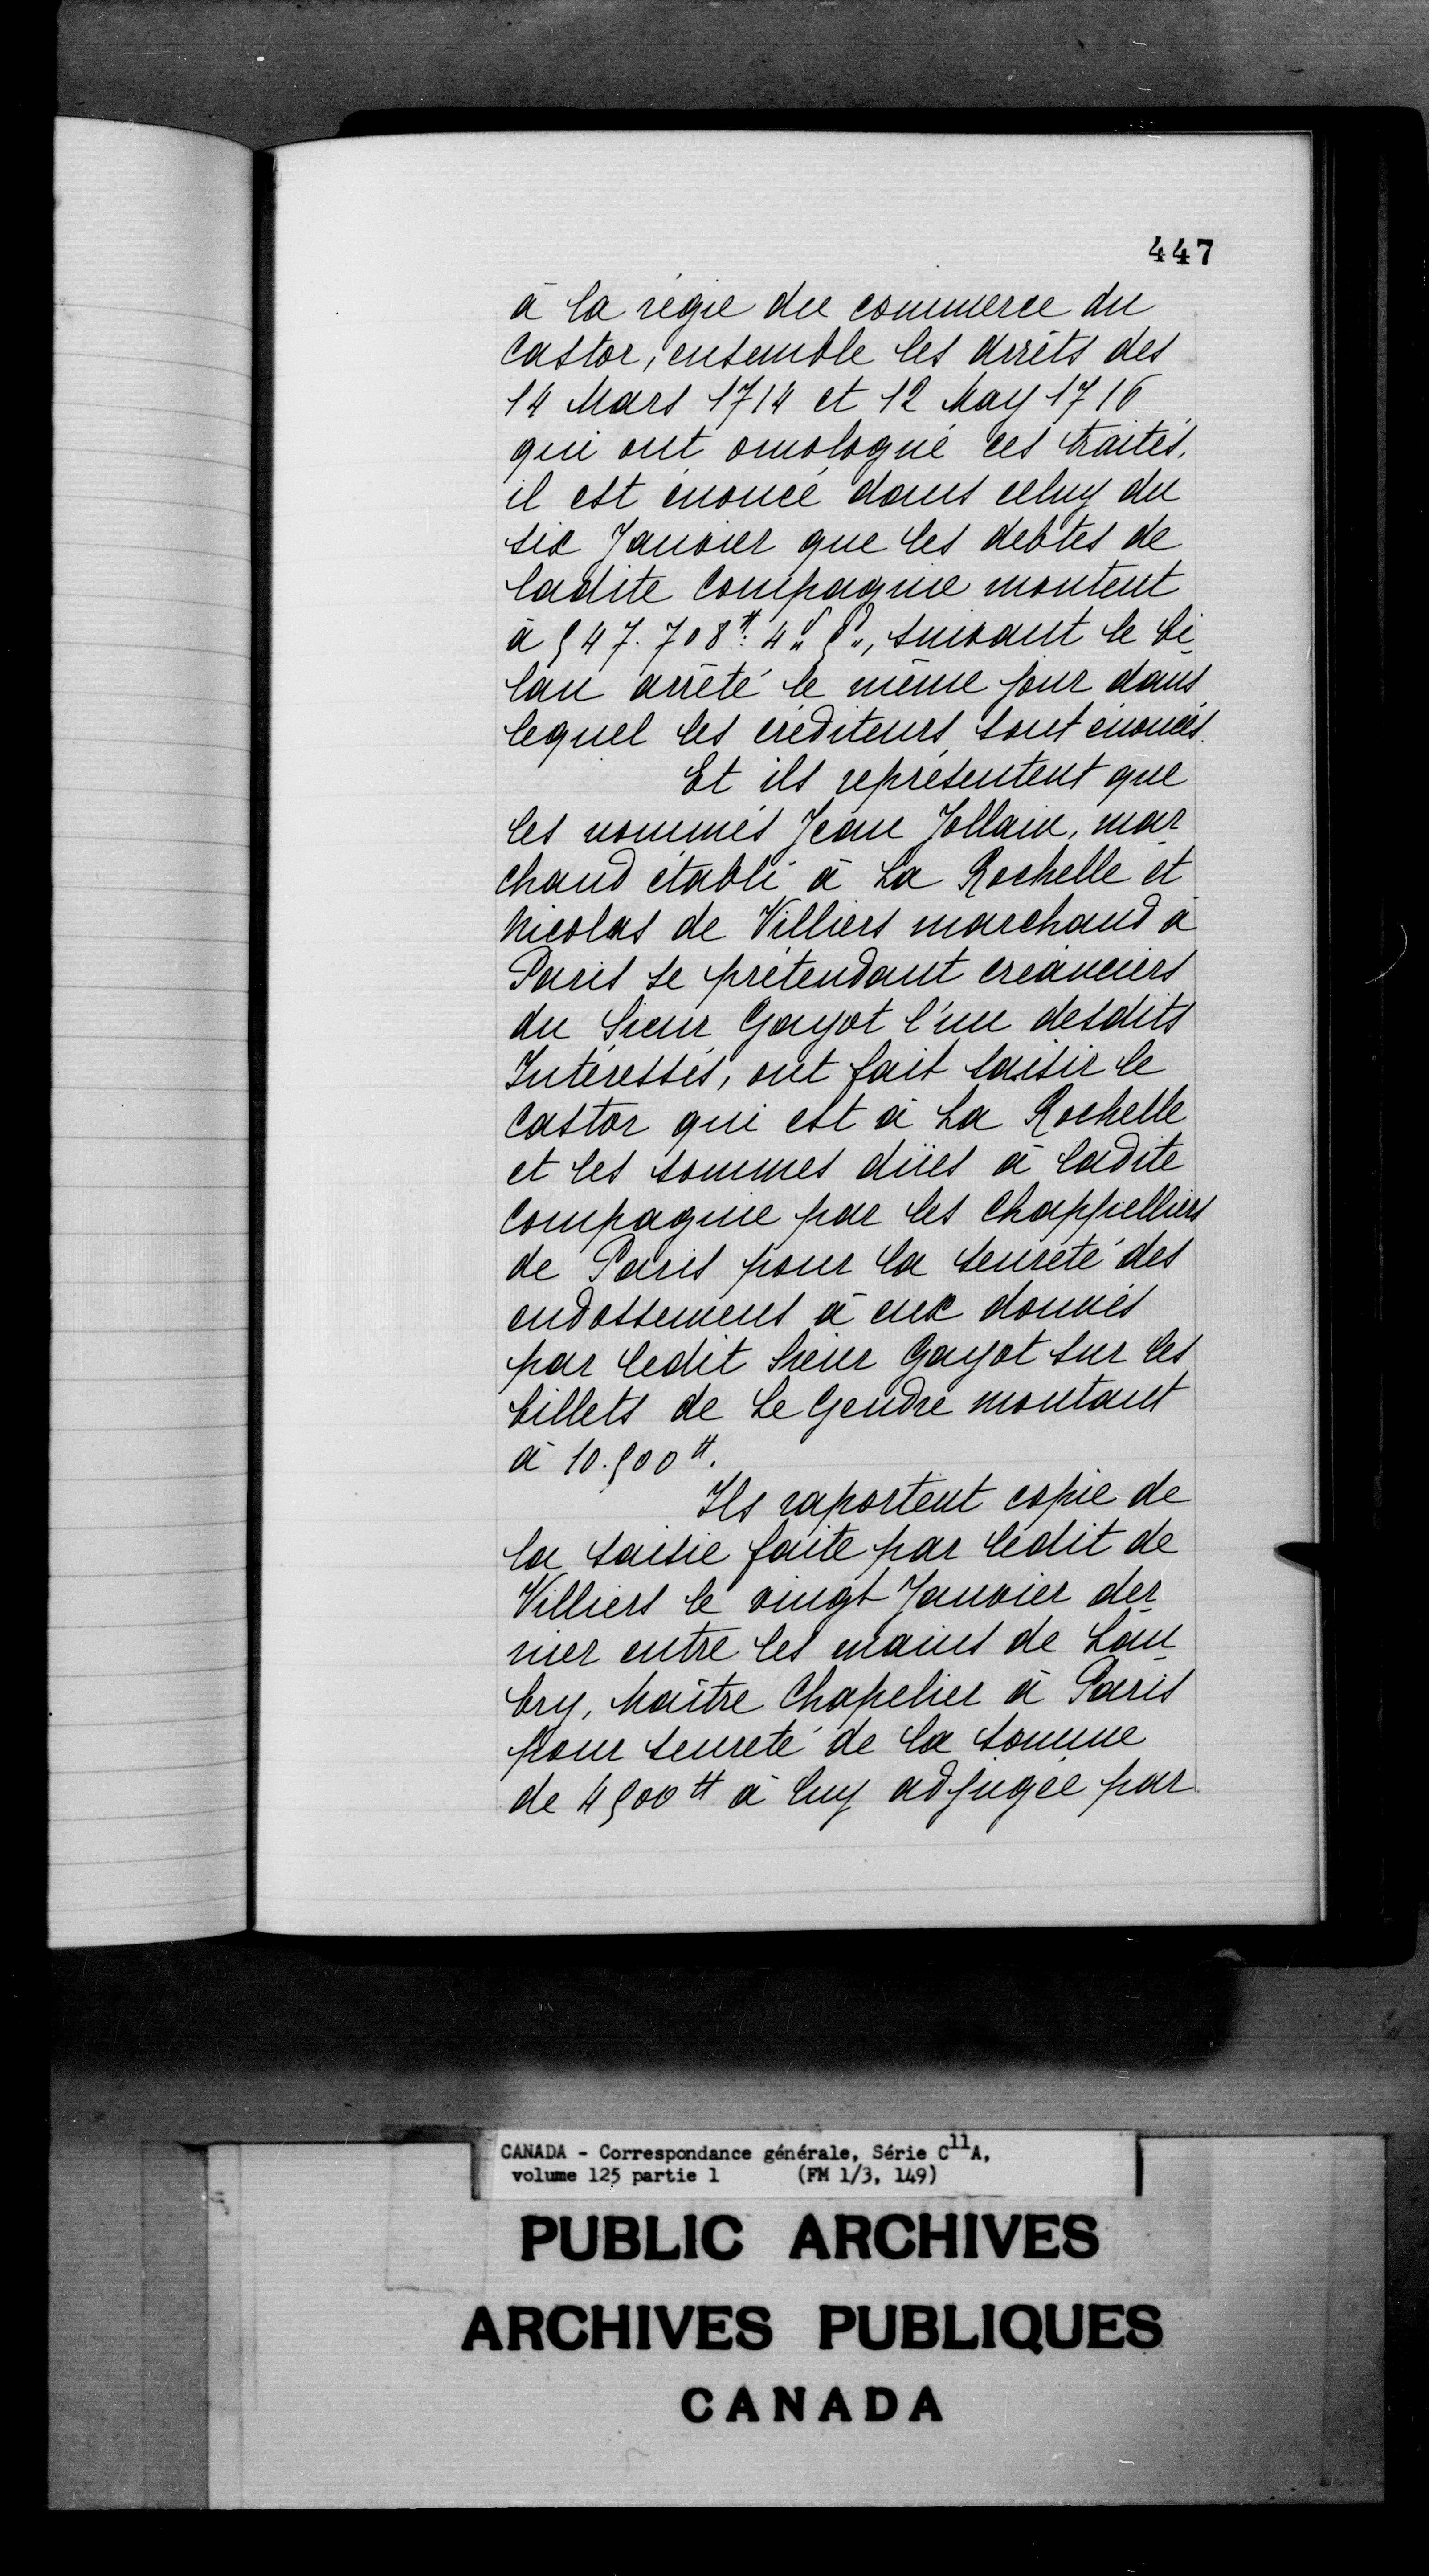 447
à la régie du commerce du
Castor, ensemble les arrêts des
14 Mars 1714 et 12 May 1716
qui ont omologué ces traités.
il est énoncé dans celuy du
six Janvier que les debtes de
ladite Compagnie montent
à 547.708₶: 4s, suivant le bi-
lan arrêté le même jour dans
lequel les créditeurs sont énoncés.
Et ils représentent que
les nommés Jean Jollain, mar-
chand établi à La Rochelle et
Nicolas de Villiers marchand à
Paris se prétendant créanciers
du Sieur Gayot l'un desdits
Intéressés, ont fait saisir le
Castor qui est à La Rochelle
et les sommes dües à ladite
Compagnie par les Chappelliers
de Paris pour la seureté des
endossemens à eux donnés
par ledit Sieur Gayot sur les
billets de Le Gendre montant
à 10.500₶.
Ils raportent copie de
la saisie faite par ledit de
Villiers le vingt Janvier der-
nier entre les mains de Lau-
bry, Maître Chapelier à Paris
pour seureté de la somme
de 4500₶ à luy adjugée par
CANADA - Correspondance générale, Série C11A,
volume 125 partie 1 (FM 1/3, 149)
PUBLIC ARCHIVES
ARCHIVES PUBLIQUES
CANADA